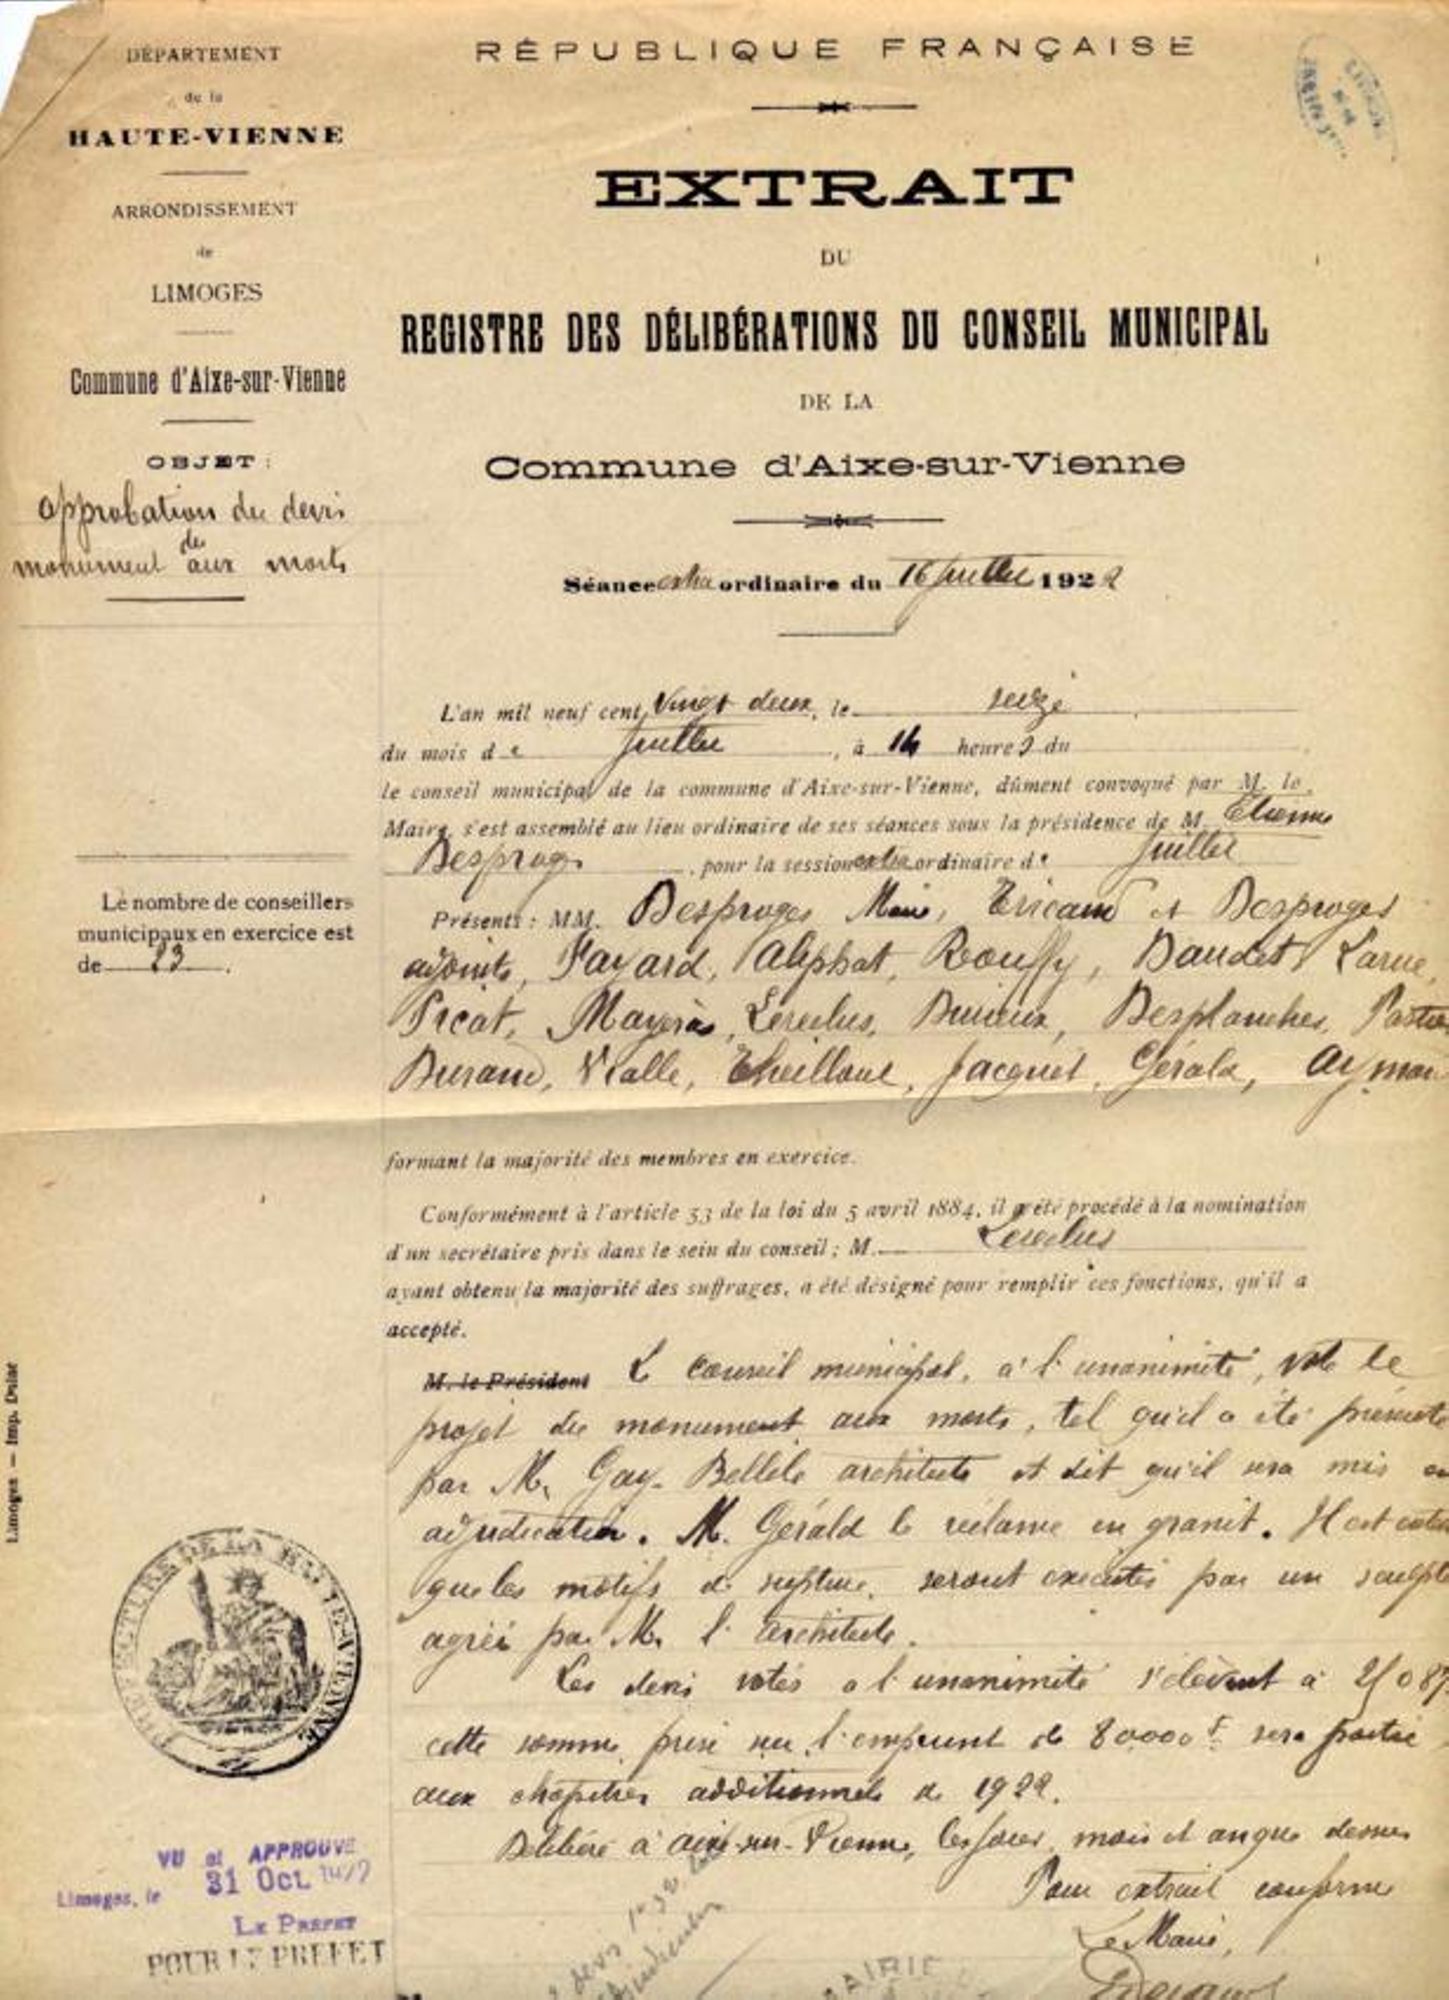 DÉPARTEMENT
de la
HAUTE-VIENNE
ARRONDISSEMENT
de
LIMOGES
Commune d'Aixe-sur-Vienne
OBJET :
approbation du devis
de
monument aux morts
RÉPUBLIQUE FRANÇAISE
EXTRAIT
DU
REGISTRE DES DÉLIBÉRATIONS DU CONSEIL MUNICIPAL
DE LA
Commune d'Aixe-sur-Vienne
Séance extra ordinaire du 16 Juillet 1922
L'an mil neuf cent vingt deux, le seize
du mois de Juillet, à 14 heures du
le conseil municipal de la commune d'Aixe-sur-Vienne, dûment convoqué par M. le
Maire, s'est assemblé au lieu ordinaire de ses séances sous la présidence de M. Etienne
Desproges, pour la session extra ordinaire de Juillet
Le nombre de conseillers
municipaux en exercice est
de 23.
Présents : MM. Desproges Maire, et Desproges
adjoints, Fayard, Aliphat, Rouffy, Baudet, Larue,
Picat, Mayéras, Lereclus, Desplanches,
Durand, Vialle, Theillout, Jacquet, Gérald,
formant la majorité des membres en exercice.
Conformément à l'article 53 de la loi du 5 avril 1884, il a été procédé à la nomination
d'un secrétaire pris dans le sein du conseil : M. Lereclus
ayant obtenu la majorité des suffrages, a été désigné pour remplir ces fonctions, qu'il a
accepté.
M. le Président L conseil municipal, à l'unanimité, vote le
projet du monument aux morts, tel qu'il a été présenté
par M. Gay-Bellile architecte et dit qu'il sera mis en
adjudication. M. Gérald le réclame en granit. Il est
que les motifs de seront exécutés par un
agréé par M. l'architecte.
Les devis votés a l'unanimité s'élèvent à
cette somme prise sur l'emprunt de 80000 f sera
aux chapitres additionnels de 1922.
Délibéré à Aixe-sur-Vienne, les jour, mois et an que dessus
Pour extrait conforme
Le Maire,
Limoges — Imp. Dulac
PRÉFECTURE DE LA HAUTE-VIENNE
VU et APPROUVÉ
Limoges, le 31 Oct. 1922
LE PRÉFET
POUR LE PRÉFET
MAIRIE